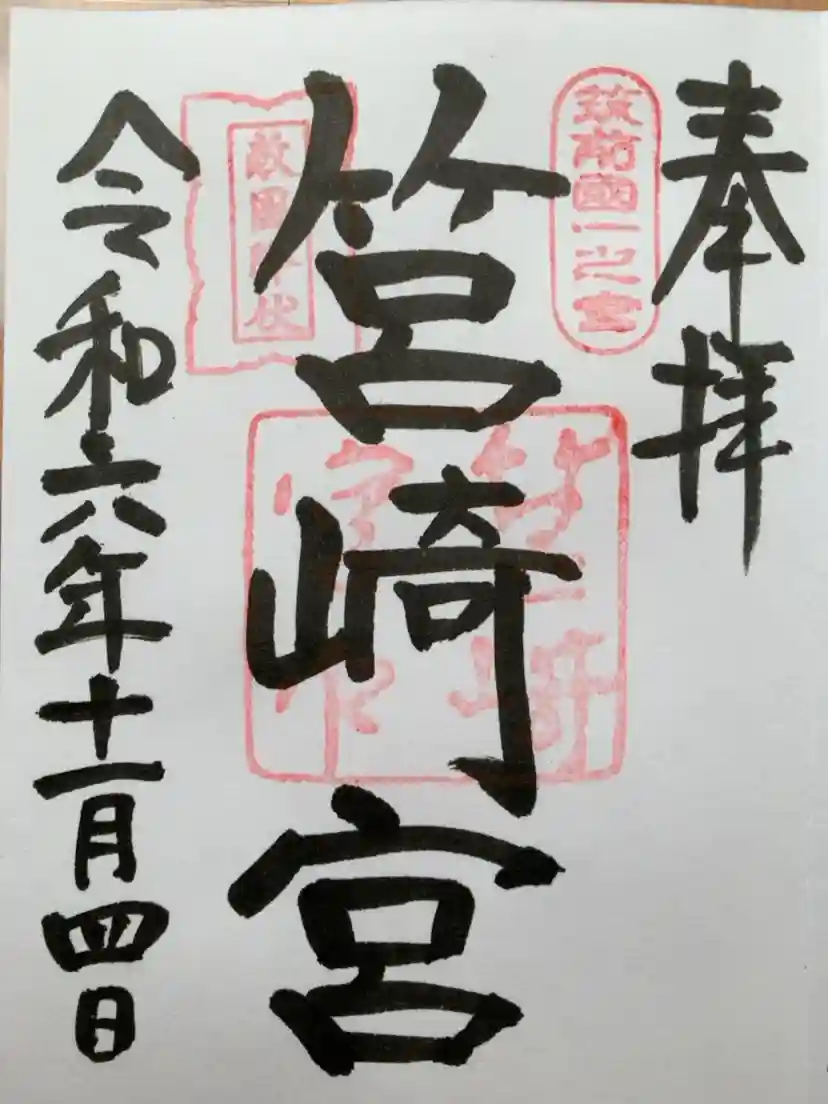 奉拝
筑前國一之宮
筥崎宮
敵国降伏
筥崎宮
令和六年十一月四日